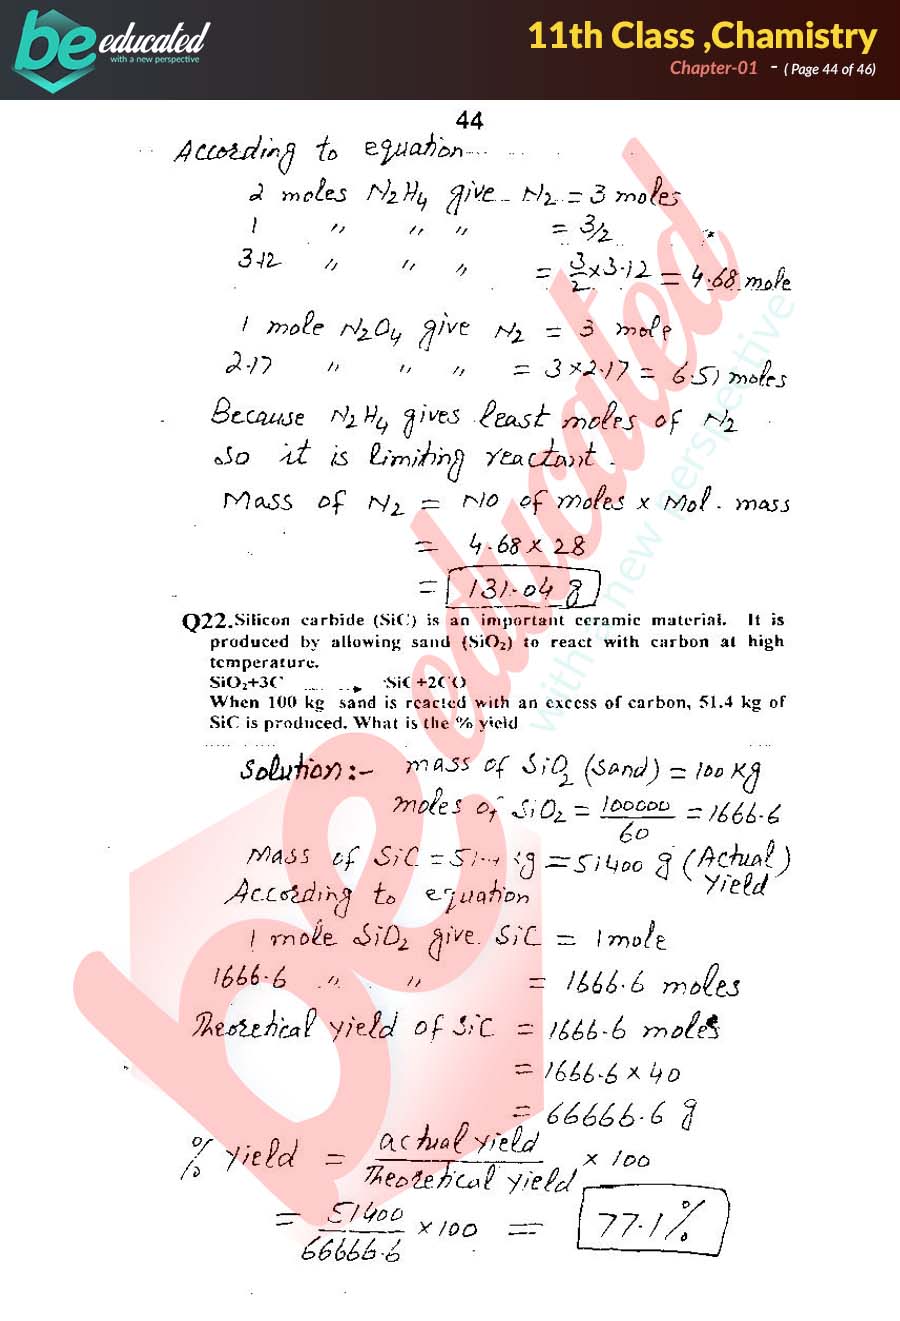 be educated
with a new perspective
11th Class ,Chamistry
Chapter-01 - ( Page 44 of 46)
44
According to equation
2 moles N2H4 give N2 = 3 moles
1 " " " = 3/2
3.12 " " " = 3/2 × 3.12 = 4.68 mole
1 mole N2O4 give N2 = 3 mole
2.17 " " " = 3×2.17 = 6.51 moles
Because N2H4 gives least moles of N2
So it is limiting reactant.
Mass of N2 = No of moles × Mol. mass
= 4.68 × 28
= 131.04 g
Q22.Silicon carbide (SiC) is an important ceramic material. It is
produced by allowing sand (SiO2) to react with carbon at high
temperature.
SiO2+3C → SiC+2CO
When 100 kg sand is reacted with an excess of carbon, 51.4 kg of
SiC is produced. What is the % yield
Solution:- mass of SiO2 (Sand) = 100 Kg
moles of SiO2 = 100000/60 = 1666.6
Mass of SiC = 51.4 kg = 51400 g (Actual Yield)
According to equation
1 mole SiO2 give SiC = 1 mole
1666.6 " " = 1666.6 moles
Theoretical yield of SiC = 1666.6 moles
= 1666.6 × 40
= 66666.6 g
% Yield = actual yield / Theoretical yield × 100
= 51400 / 66666.6 × 100 = 77.1%
be educated
with a new perspective